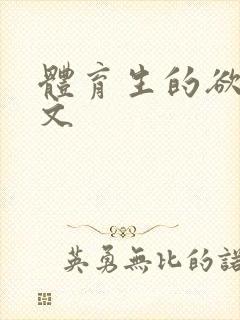 體育生的欲
文
英勇無比的諾